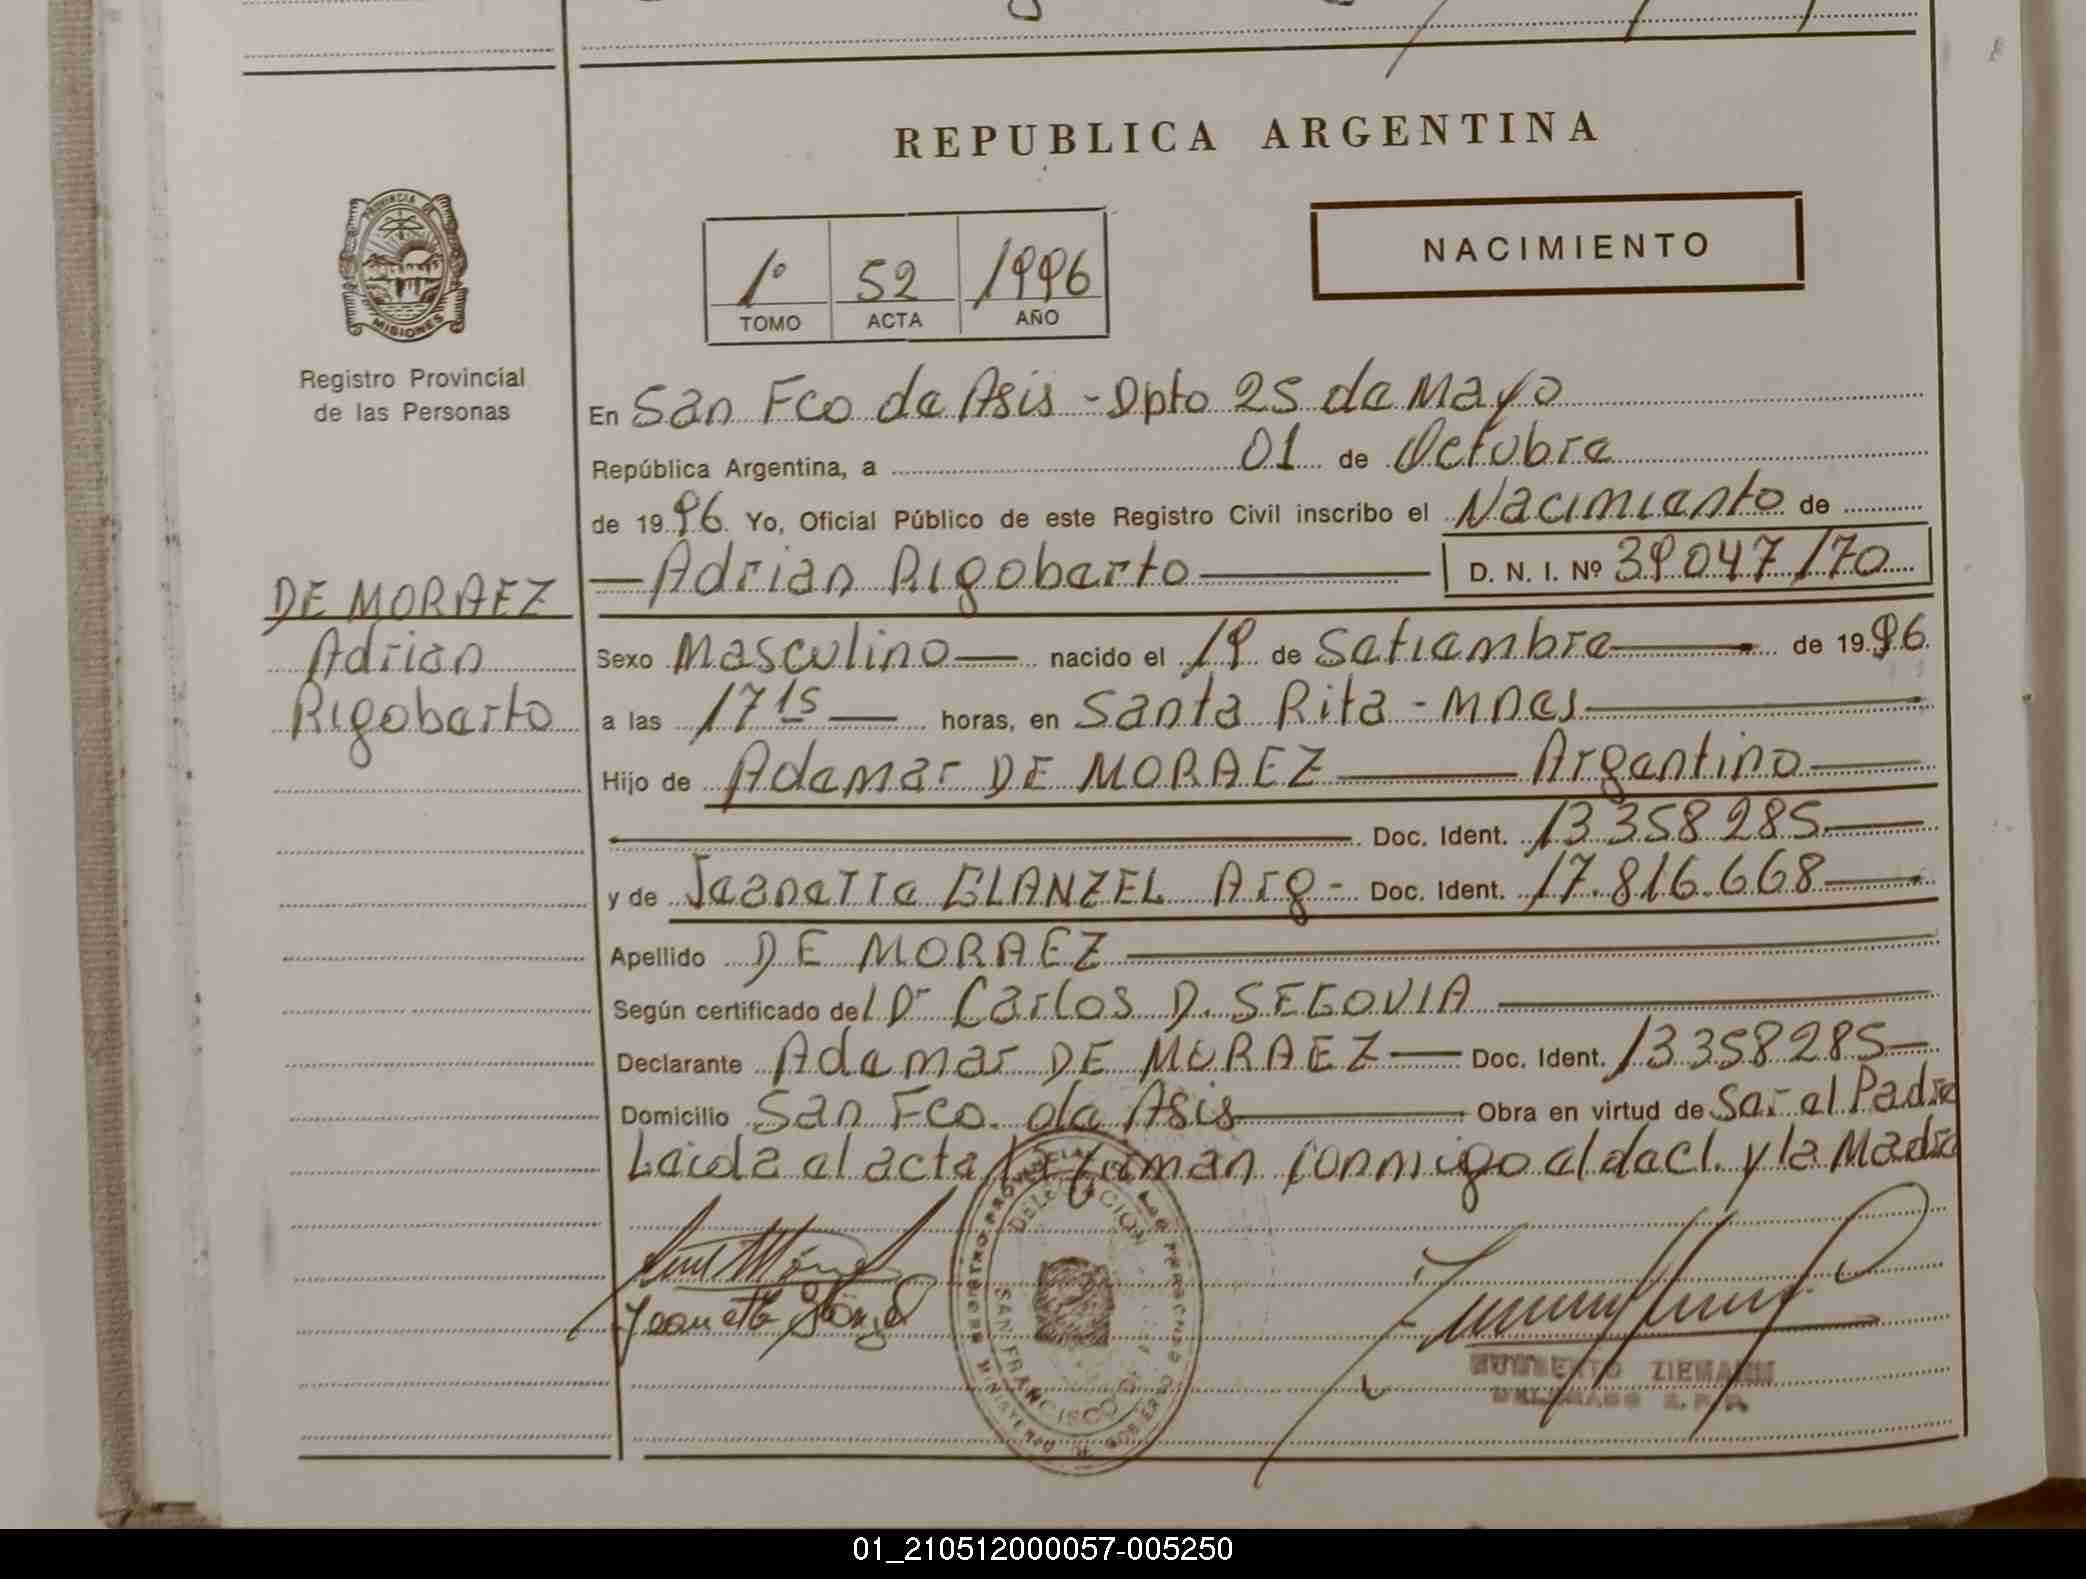 REPUBLICA ARGENTINA
NACIMIENTO
1º 52 1996
TOMO ACTA AÑO
PROVINCIA DE
MISIONES
Registro Provincial
de las Personas
DE MORAEZ
Adrian
Rigoberto
En San Fco de Asis - Dpto 25 de Mayo
República Argentina, a 01 de Octubre
de 1996 Yo, Oficial Público de este Registro Civil inscribo el Nacimiento de
Adrian Rigoberto D. N. I. Nº 39047170
Sexo Masculino nacido el 19 de Setiembre de 1996
a las 17 15 horas, en Santa Rita - Mnes
Hijo de Ademar DE MORAEZ Argentino
Doc. Ident. 13358285
y de Jeanette GLANZEL Arg - Doc. Ident. 17.816.668
Apellido DE MORAEZ
Según certificado del Dr Carlos D. SEGOVIA
Declarante Ademar DE MORAEZ Doc. Ident. 13358285
Domicilio San Fco. de Asis Obra en virtud de Ser el Padre
Leida el acta la firman conmigo el decl. y la Madre
Jeanette Glänzel
DELEGACION
SAN FRANCISCO
ZIEMANN
01_210512000057-005250